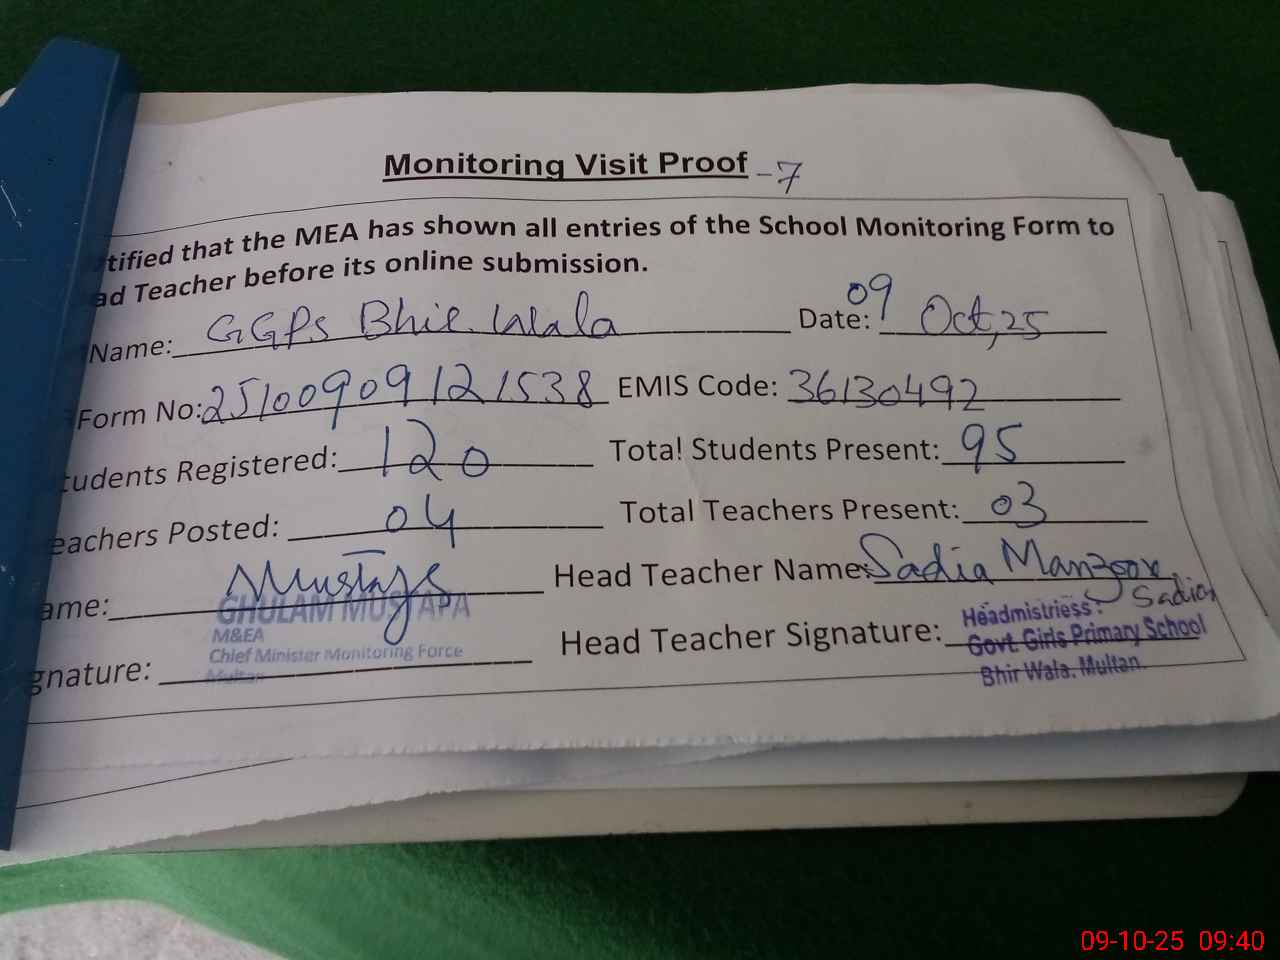 Monitoring Visit Proof -7
tified that the MEA has shown all entries of the School Monitoring Form to
ad Teacher before its online submission.
Name: GGPS Bhir Wala Date: 09 Oct, 25
Form No: 25100909121538 EMIS Code: 36130492
tudents Registered: 120 Total Students Present: 95
eachers Posted: 04 Total Teachers Present: 03
ame: Mustafa Head Teacher Name: Sadia Manzoor
GHULAM MUSTAPA
M&EA
Chief Minister Monitoring Force
Multan
gnature: Head Teacher Signature: Sadia
Headmistriess:
Govt. Girls Primary School
Bhir Wala. Multan.
09-10-25 09:40